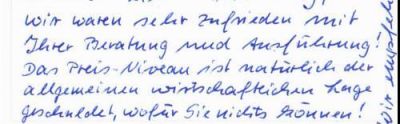 wir waren sehr zufrieden mit
Ihrer Beratung und Ausführung!
Das Preis-Niveau ist natürlich der
allgemeinen wirtschaftlichen Lage
geschuldet, wofür Sie nichts können!
Wir empfehl